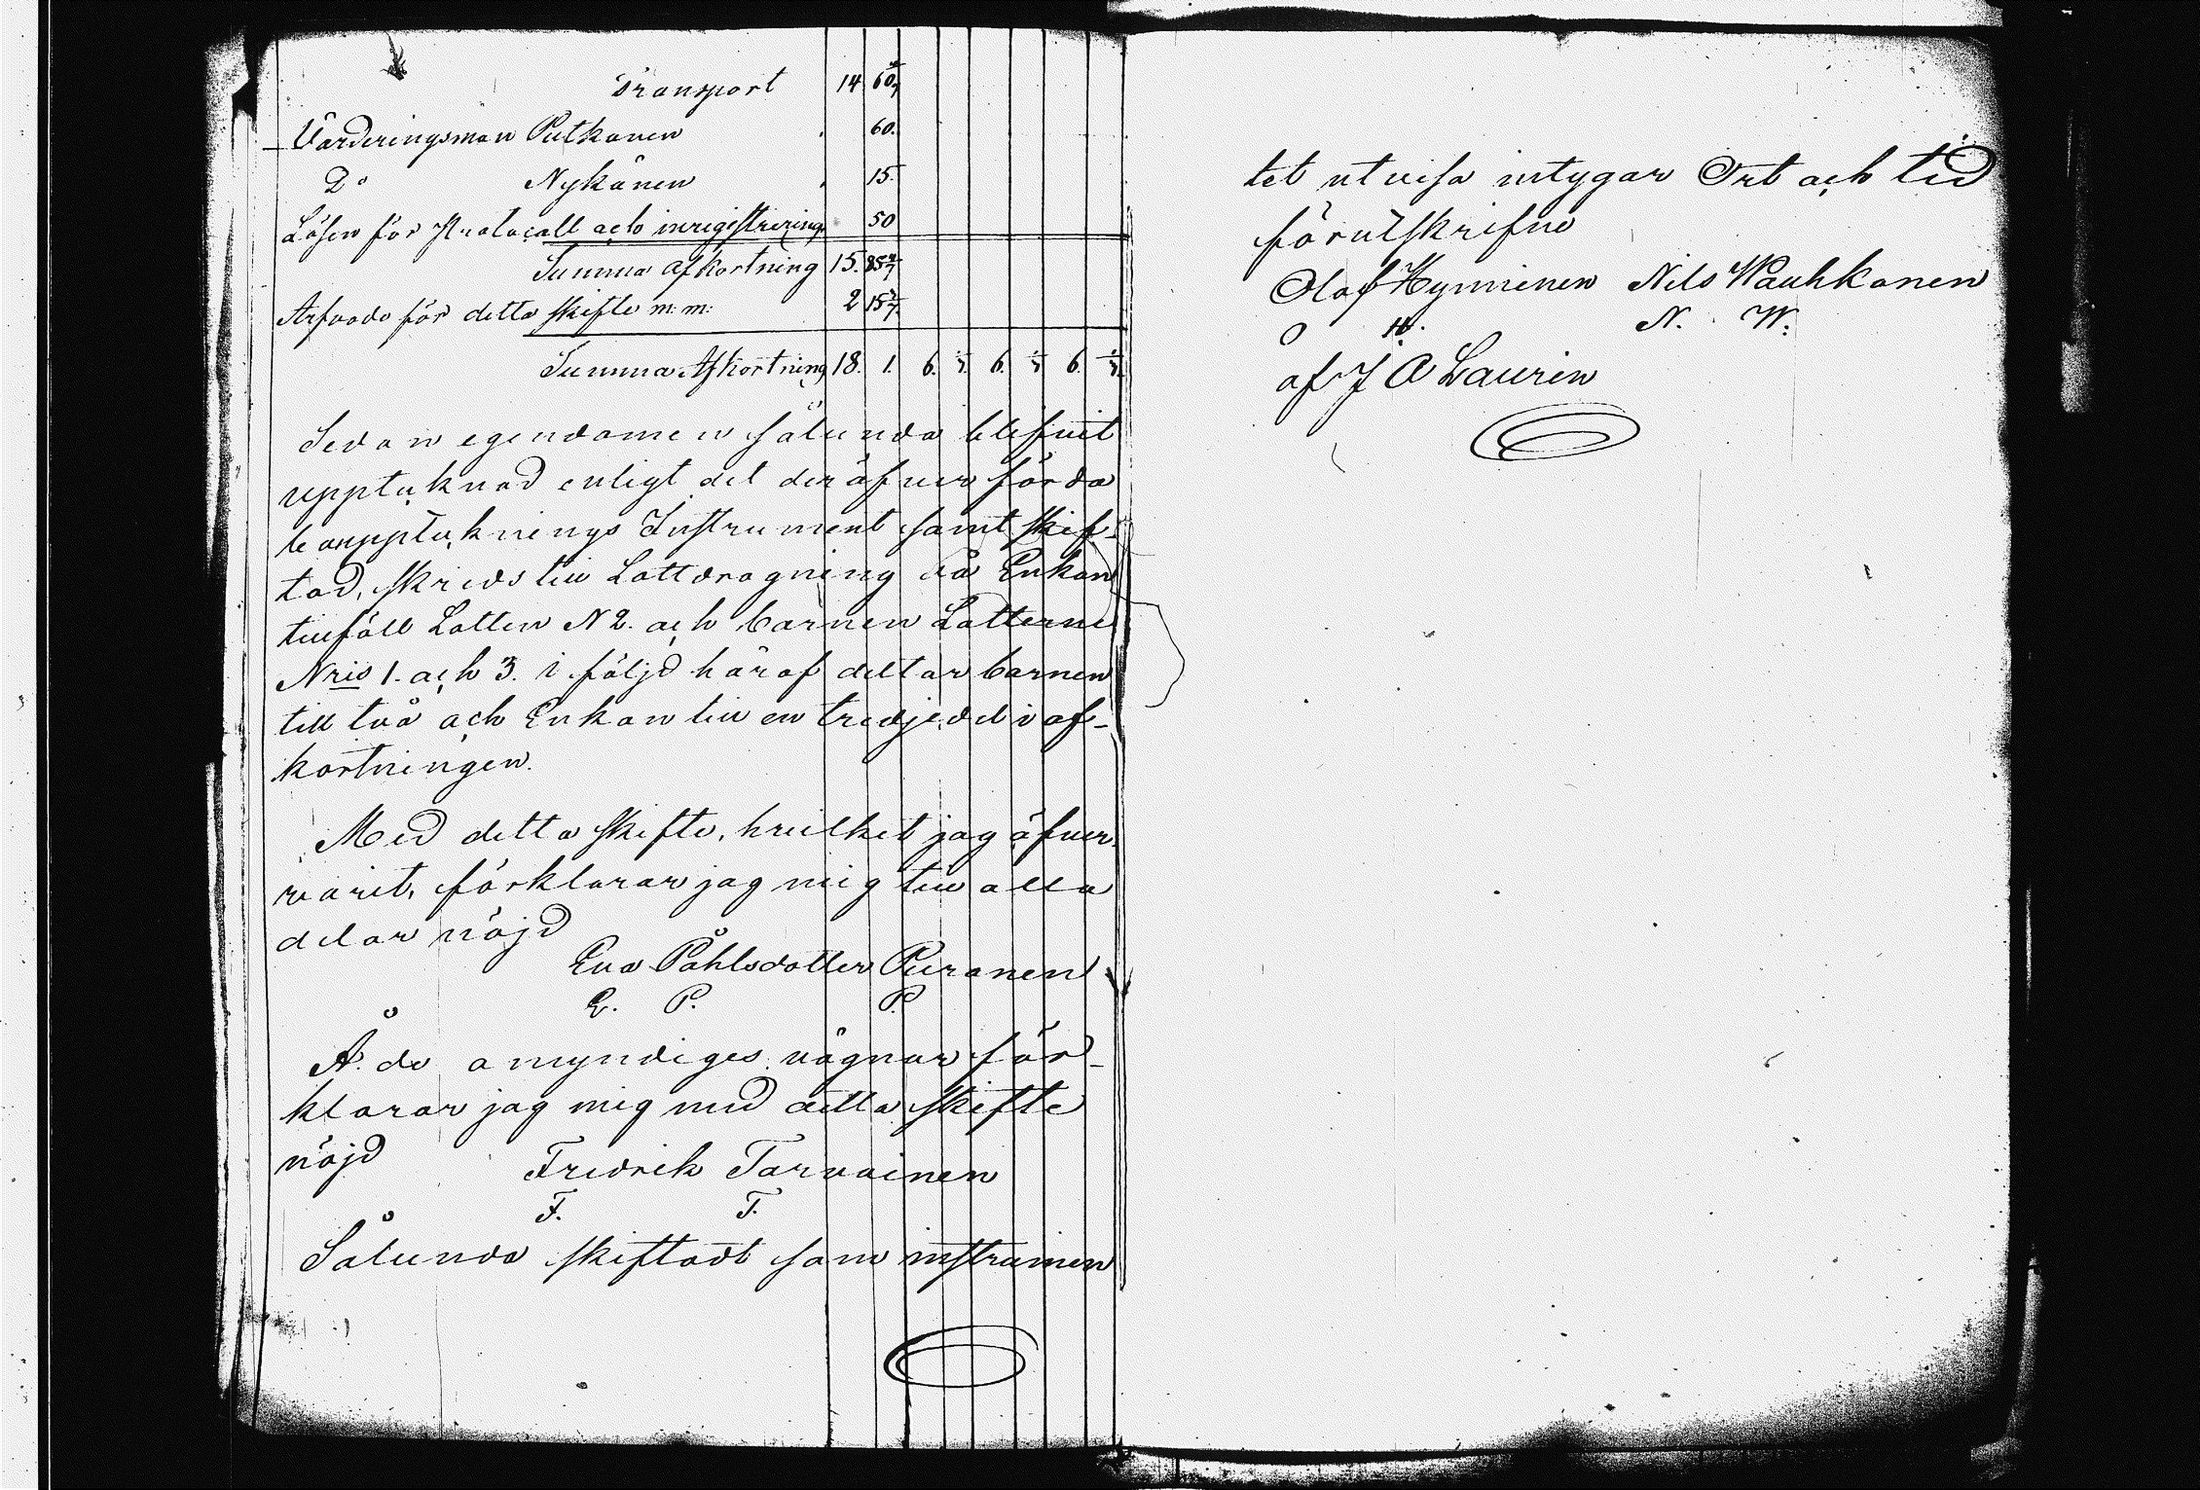 Transport 14 60 4/7
Värderingsman Putkonen . 60.
Do Nykänen . 15.
Lösen för Protocoll och inregistrering 50
Summa afkortning 15. 85 4/7
Arfvode för detta skifte m: m: 2 15 3/7.
Summa Afkortning 18. 1. 6. 6. 6.
Sedan egendomen sålunda blifvit
upptäknad enligt det deröfver förda
bouppteknings Instrument samt skif-
tad, skreds till Lottdragning då Enkan
tillföll Lotten N 2. och barnen Lotterne
Nris 1. och 3. i följd häraf deltar barnen
till två och Enkan till en tredjedel i af-
kortningen.
Med detta skifte, hvilket jag öfver-
varit, förklarar jag mig till alla
delar nöjd
Eva Påhlsdotter Puranen
E. P. P.
Å. de omyndiges vägnar för-
klarar jag mig med detta skifte
nöjd Fredrik Tarvainen
F. T.
Sålunda skiftadt som instrumen
tet utvisa intygar Ort och tid
förutskrifne
Olof Hynninen Nils Wauhkonen
O H. N. W.
af J A Laurin